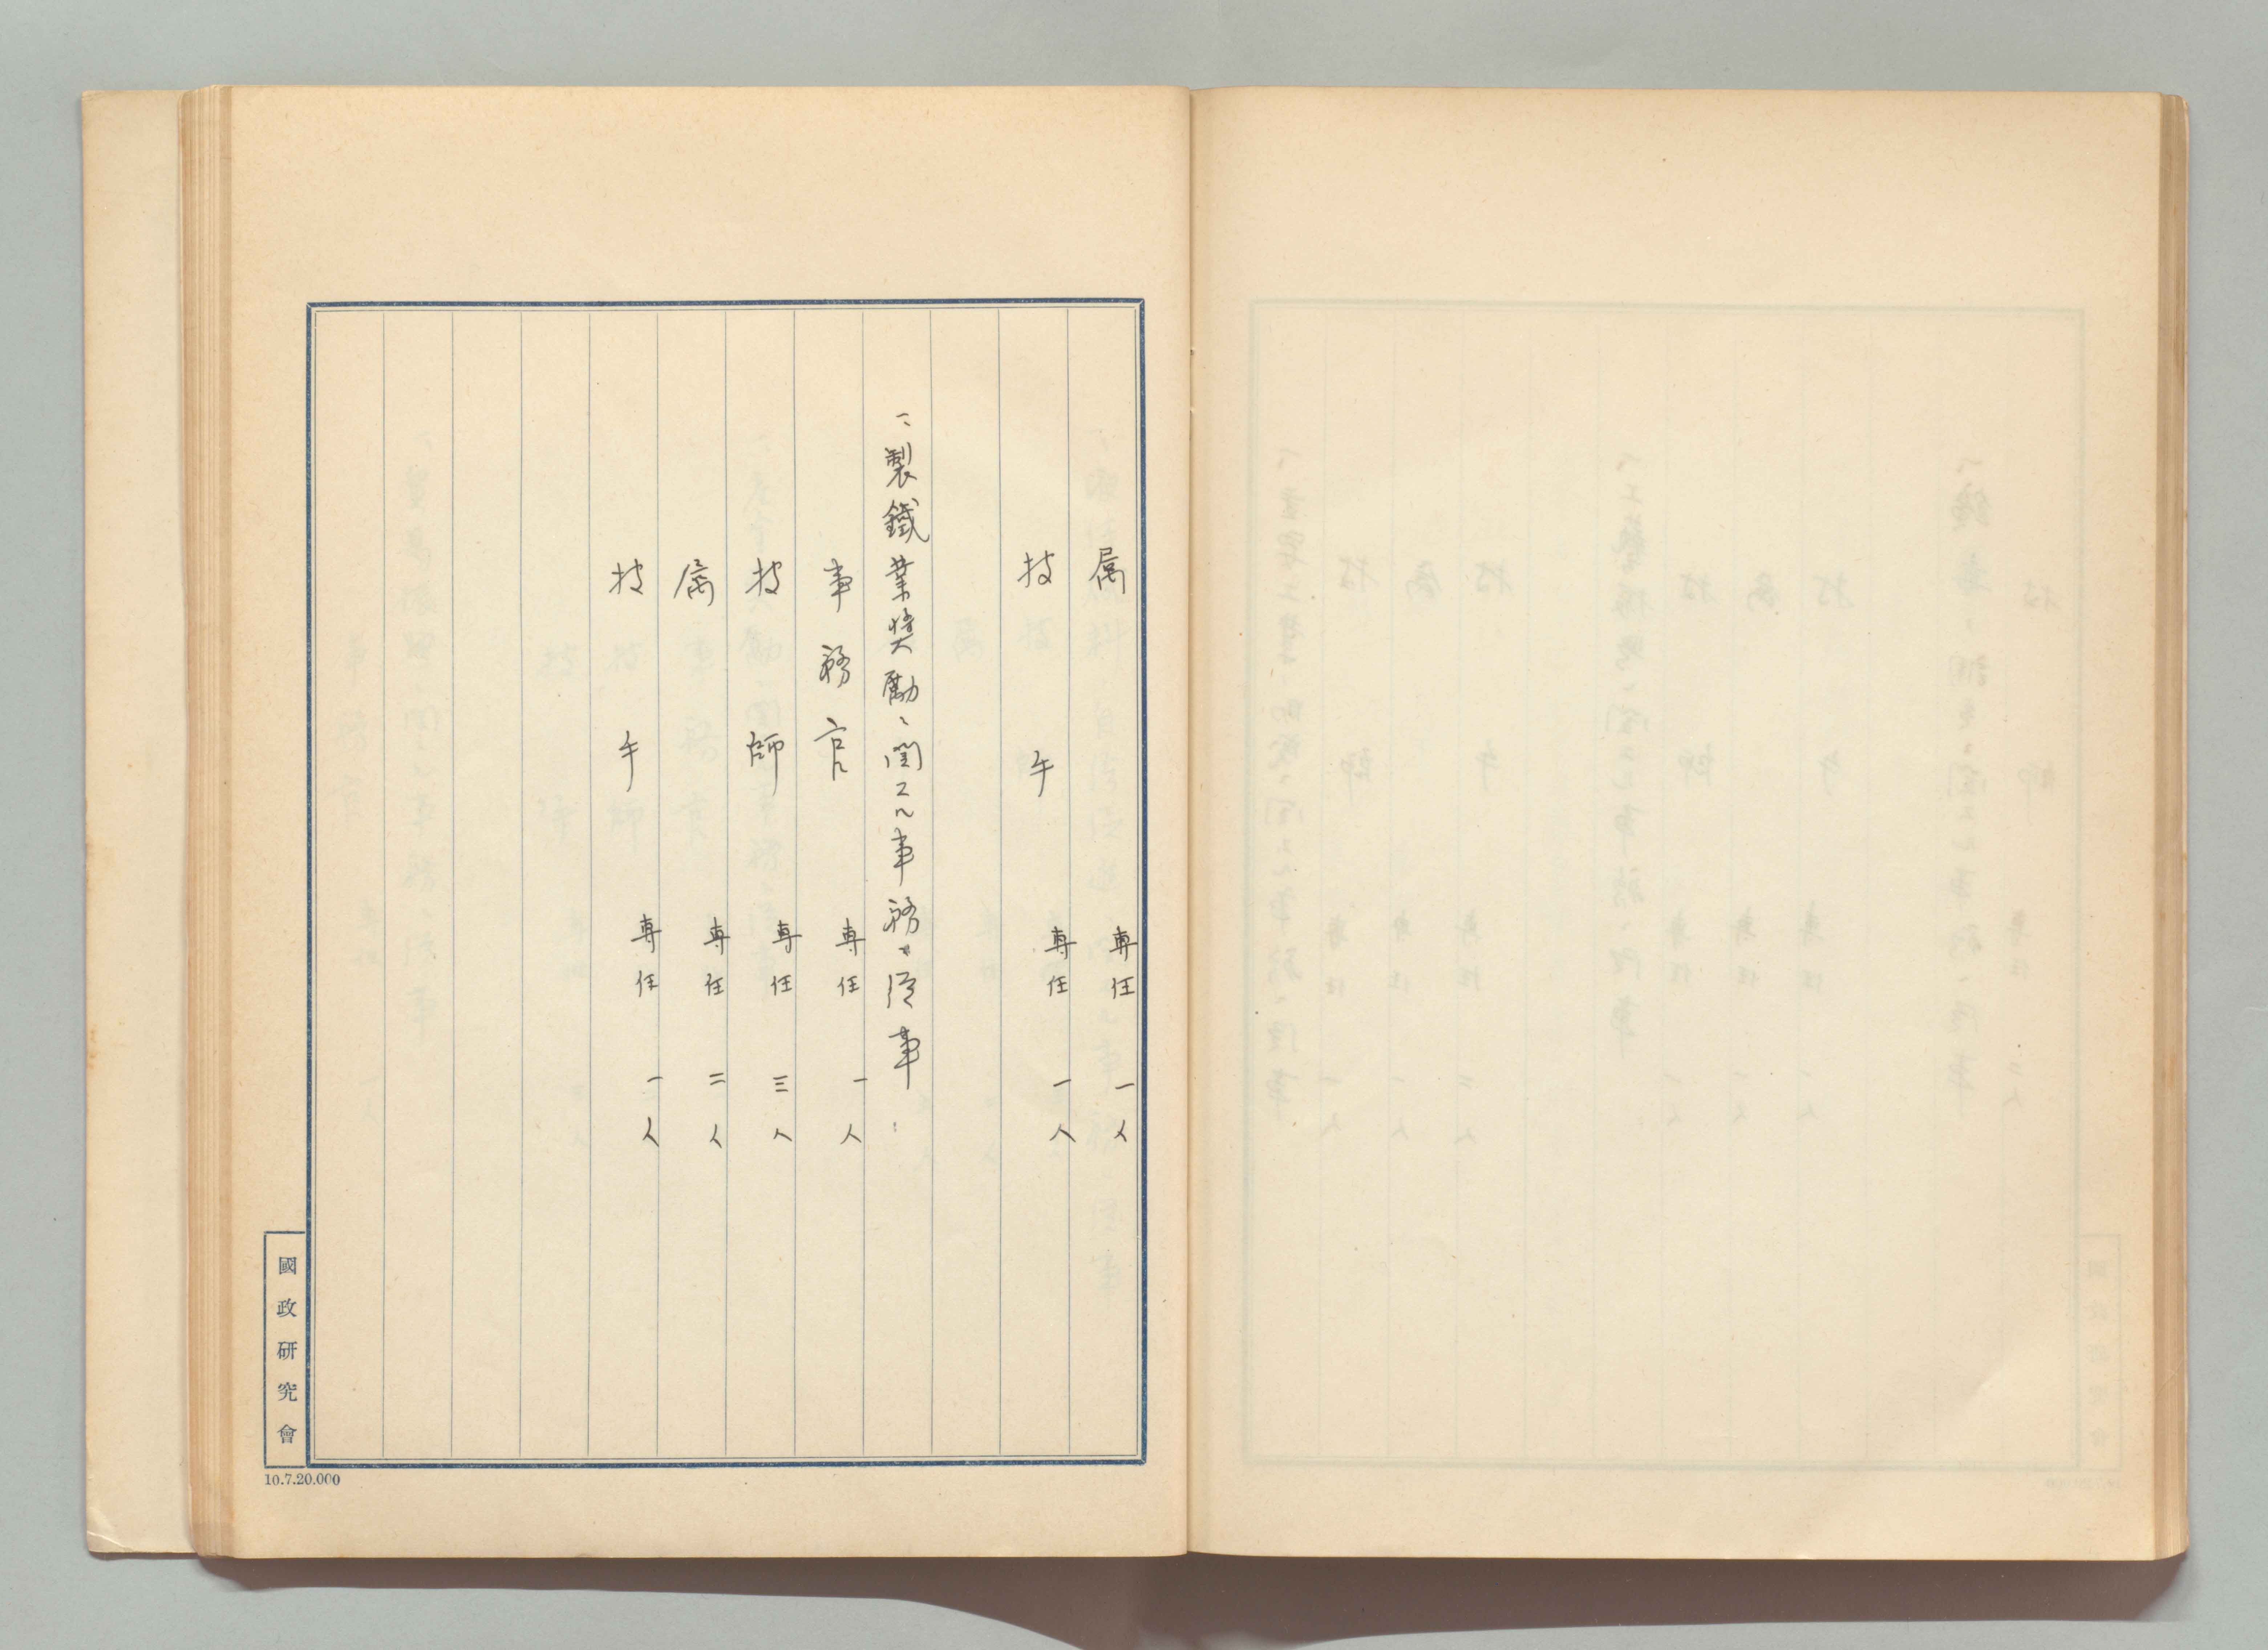 属 専任 一人
技手 専任 一人
一、製鐵業奨勵ニ関スル事務ニ従事
事務官 専任 一人
技師 専任 三人
属 専任 二人
技手 専任 一人
國政研究會
10.7.20.000